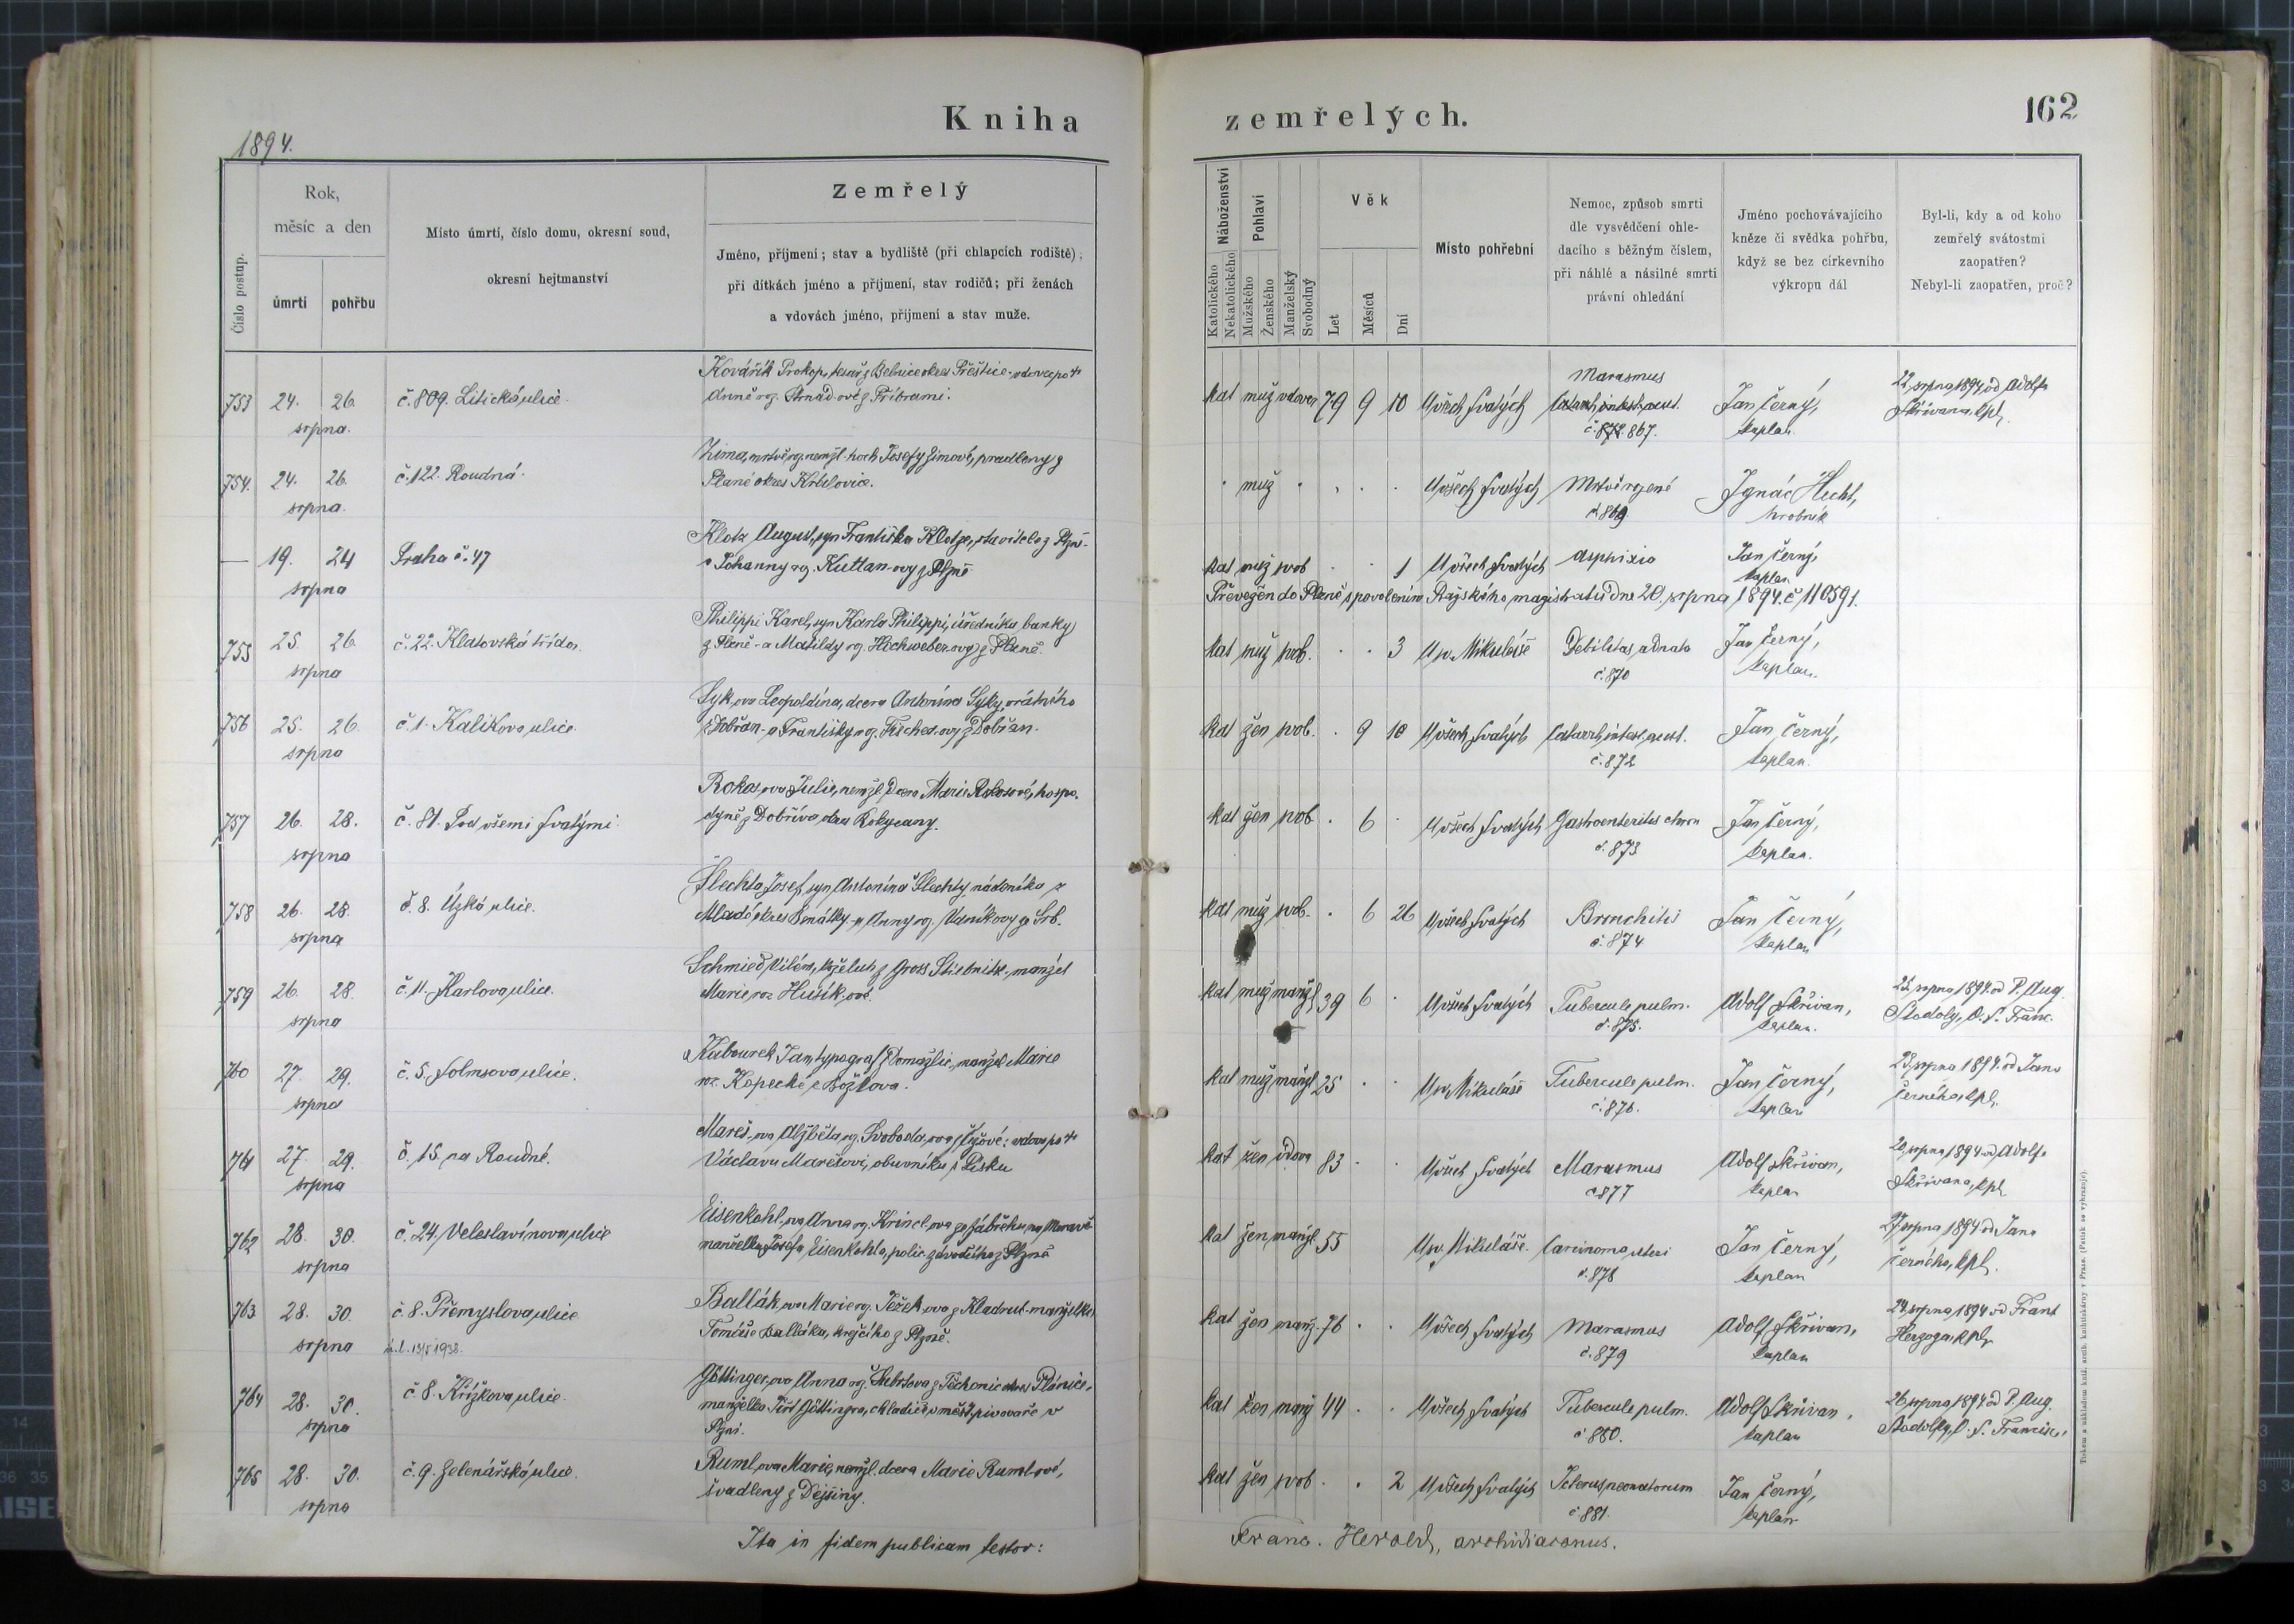 Kniha
zemřelých.
162
1894.
Číslo postup.
Rok,
měsíc a den
úmrtí
pohřbu
Místo úmrtí, číslo domu, okresní soud,
okresní hejtmanství
Zemřelý
Jméno, příjmení; stav a bydliště (při chlapcích rodiště);
při dítkách jméno a příjmení, stav rodičů; při ženách
a vdovách jméno, příjmení a stav muže.
Náboženství
Katolického
Nekatolického
Pohlaví
Mužského
Ženského
Manželský
Svobodný
Věk
Let
Měsíců
Dní
Místo pohřební
Nemoc, způsob smrti
dle vysvědčení ohle-
dacího s běžným číslem,
při náhlé a násilné smrti
právní ohledání
Jméno pochovávajícího
kněze či svědka pohřbu,
když se bez církevního
výkropu dál
Byl-li, kdy a od koho
zemřelý svátostmi
zaopatřen?
Nebyl-li zaopatřen, proč?
753 24. 26. srpna. č. 809. Litická ulice.
Kovářík Prokop, z okres Přeštice - vdovec po †
Anně roz. z Příbrami.
kat muž vdovec 79 9 10 U všech svatých
Marasmus
Catarrh intest. acut.
č. 872 867.
Jan Černý,
kaplan.
22. srpna 1894 od Adolfa
Skřivana, kpl.
754. 24. 26. srpna. č. 122. Roudná.
Zima, mrtvě roz. nemžl. hoch Josefy Zimové, pradleny z
Plané okres Křelovice.
muž U všech svatých Mrtvě rozené
č. 869
Ignác Hecht,
hrobník
— 19. 24 srpna Praha č. 47
Klotz August, syn Františka Klotze, stavitele z Plzně -
a Johanny roz. Kuttan-ovy z Plzně.
kat muž svob 1 U všech svatých asphixia
Jan Černý,
kaplan
Převezen do Plzně s povolením Pražského magistrátu dne 20. srpna 1894. č. 110591.
755 25. 26. srpna č. 22. Klatovská třída.
Philippi Karel, syn Karla Philippi, úředníka banky
z Plzně - a Matildy roz. Hochweber-ovy z Plzně.
kat muž svob. 3 U sv. Mikuláše Debilitas adnata
č. 870
Jan Černý,
kaplan.
756 25. 26. srpna č. 1. Kalikova ulice.
Syk, ova Leopoldina, dcera Antonína Syky, vrátného
z Dobřan - a Františky roz. Fischer-ovy z Dobřan.
kat žen svob. 9 10 U všech svatých Catarrh intest. acut.
č. 872
Jan Černý,
kaplan.
757 26. 28. srpna č. 81. Pod všemi svatými.
Rokos, ova Julie, nemžl. dcera Marie Rokosové, hospo-
dyně z Dobříva okres Rokycany.
kat žen svob 6 U všech svatých Gastroenteritis chron
č. 873
Jan Černý,
kaplan.
758 26. 28. srpna č. 8. Úzká ulice.
Šlechta Josef, syn Antonína Šlechty, nádeníka z
Mladé okres Benátky - a Anny roz. Vaníkovy ze Srb.
kat muž svob. 6 26 U všech svatých Bronchitis
č. 874
Jan Černý,
kaplan
759 26. 28. srpna č. 11. Karlova ulice.
Schmied Vilém, koželuh z Gross Stiebnitz - manžel
Marie roz Husík-ové.
kat muž manžl 39 6 U všech svatých Tubercule pulm.
č. 875.
Adolf Skřivan,
kaplan.
25. srpna 1894. od P. Aug.
Stodoly, O. S. Franc.
760 27. 29. srpna č. 5. Solmsova ulice.
Kubourek Jan, typograf z Domažlic, manžel Marie
roz. Kopecké z Božkova.
kat muž manžl 25 U sv. Mikuláše Tubercule pulm.
č. 876.
Jan Černý,
kaplan
23. srpna 1894. od Jana
Černého, kpl.
761 27. 29. srpna č. 15. na Roudné.
Mareš, ova Alžběta roz. Svoboda, ova z : vdova po †
Václavu Marešovi, obuvníku z Písku
kat žen vdova 83 U všech svatých Marasmus
č. 877
Adolf Skřivan,
kaplan
20. srpna 1894 od Adolfa
Skřivana, kpl.
762 28. 30. srpna č. 24. Veleslavínova ulice
Eisenkohl, ova Anna roz. Krinel-ova ze Zábřehu na Moravě
manželka Josefa Eisenkohla, polic. z Plzně
kat žen manžl 55 U sv. Mikuláše. Carcinoma uteri
č. 878
Jan Černý,
kaplan
27. srpna 1894 od Jana
Černého, kpl.
763 28. 30. srpna č. 8. Přemyslova ulice
ú. l. 13/5 1938.
Ballák, ova Marie roz. Ježek-ova z Kladrub - manželka
Tomáše Balláka, krejčího z Plzně.
kat žen manž. 76 U všech svatých Marasmus
č. 879
Adolf Skřivan,
kaplan
24. srpna 1894 od Frant
Herzoga, kpl.
764 28. 30. srpna č. 8. Křížkova ulice.
Göttinger, ova Anna roz. z Těchonic okres Plánice,
manželka Göttingra, chladiče v měšť. pivovaře v
Plzni.
kat žen manž 44 U všech svatých Tubercule pulm.
č. 880.
Adolf Skřivan,
kaplan
26. srpna 1894 od P. Aug.
Stodoly, O. S. Francisc.
765 28. 30. srpna č. 9. Zelenářská ulice.
Ruml, ova Marie, nemžl. dcera Marie Rumlové,
švadleny z Dejšiny.
kat žen svob 2 U všech svatých Icterus neonatorum
č. 881.
Jan Černý,
kaplan
Ita in fidem publicam testor:
Franc. Herold, archidiaconus.